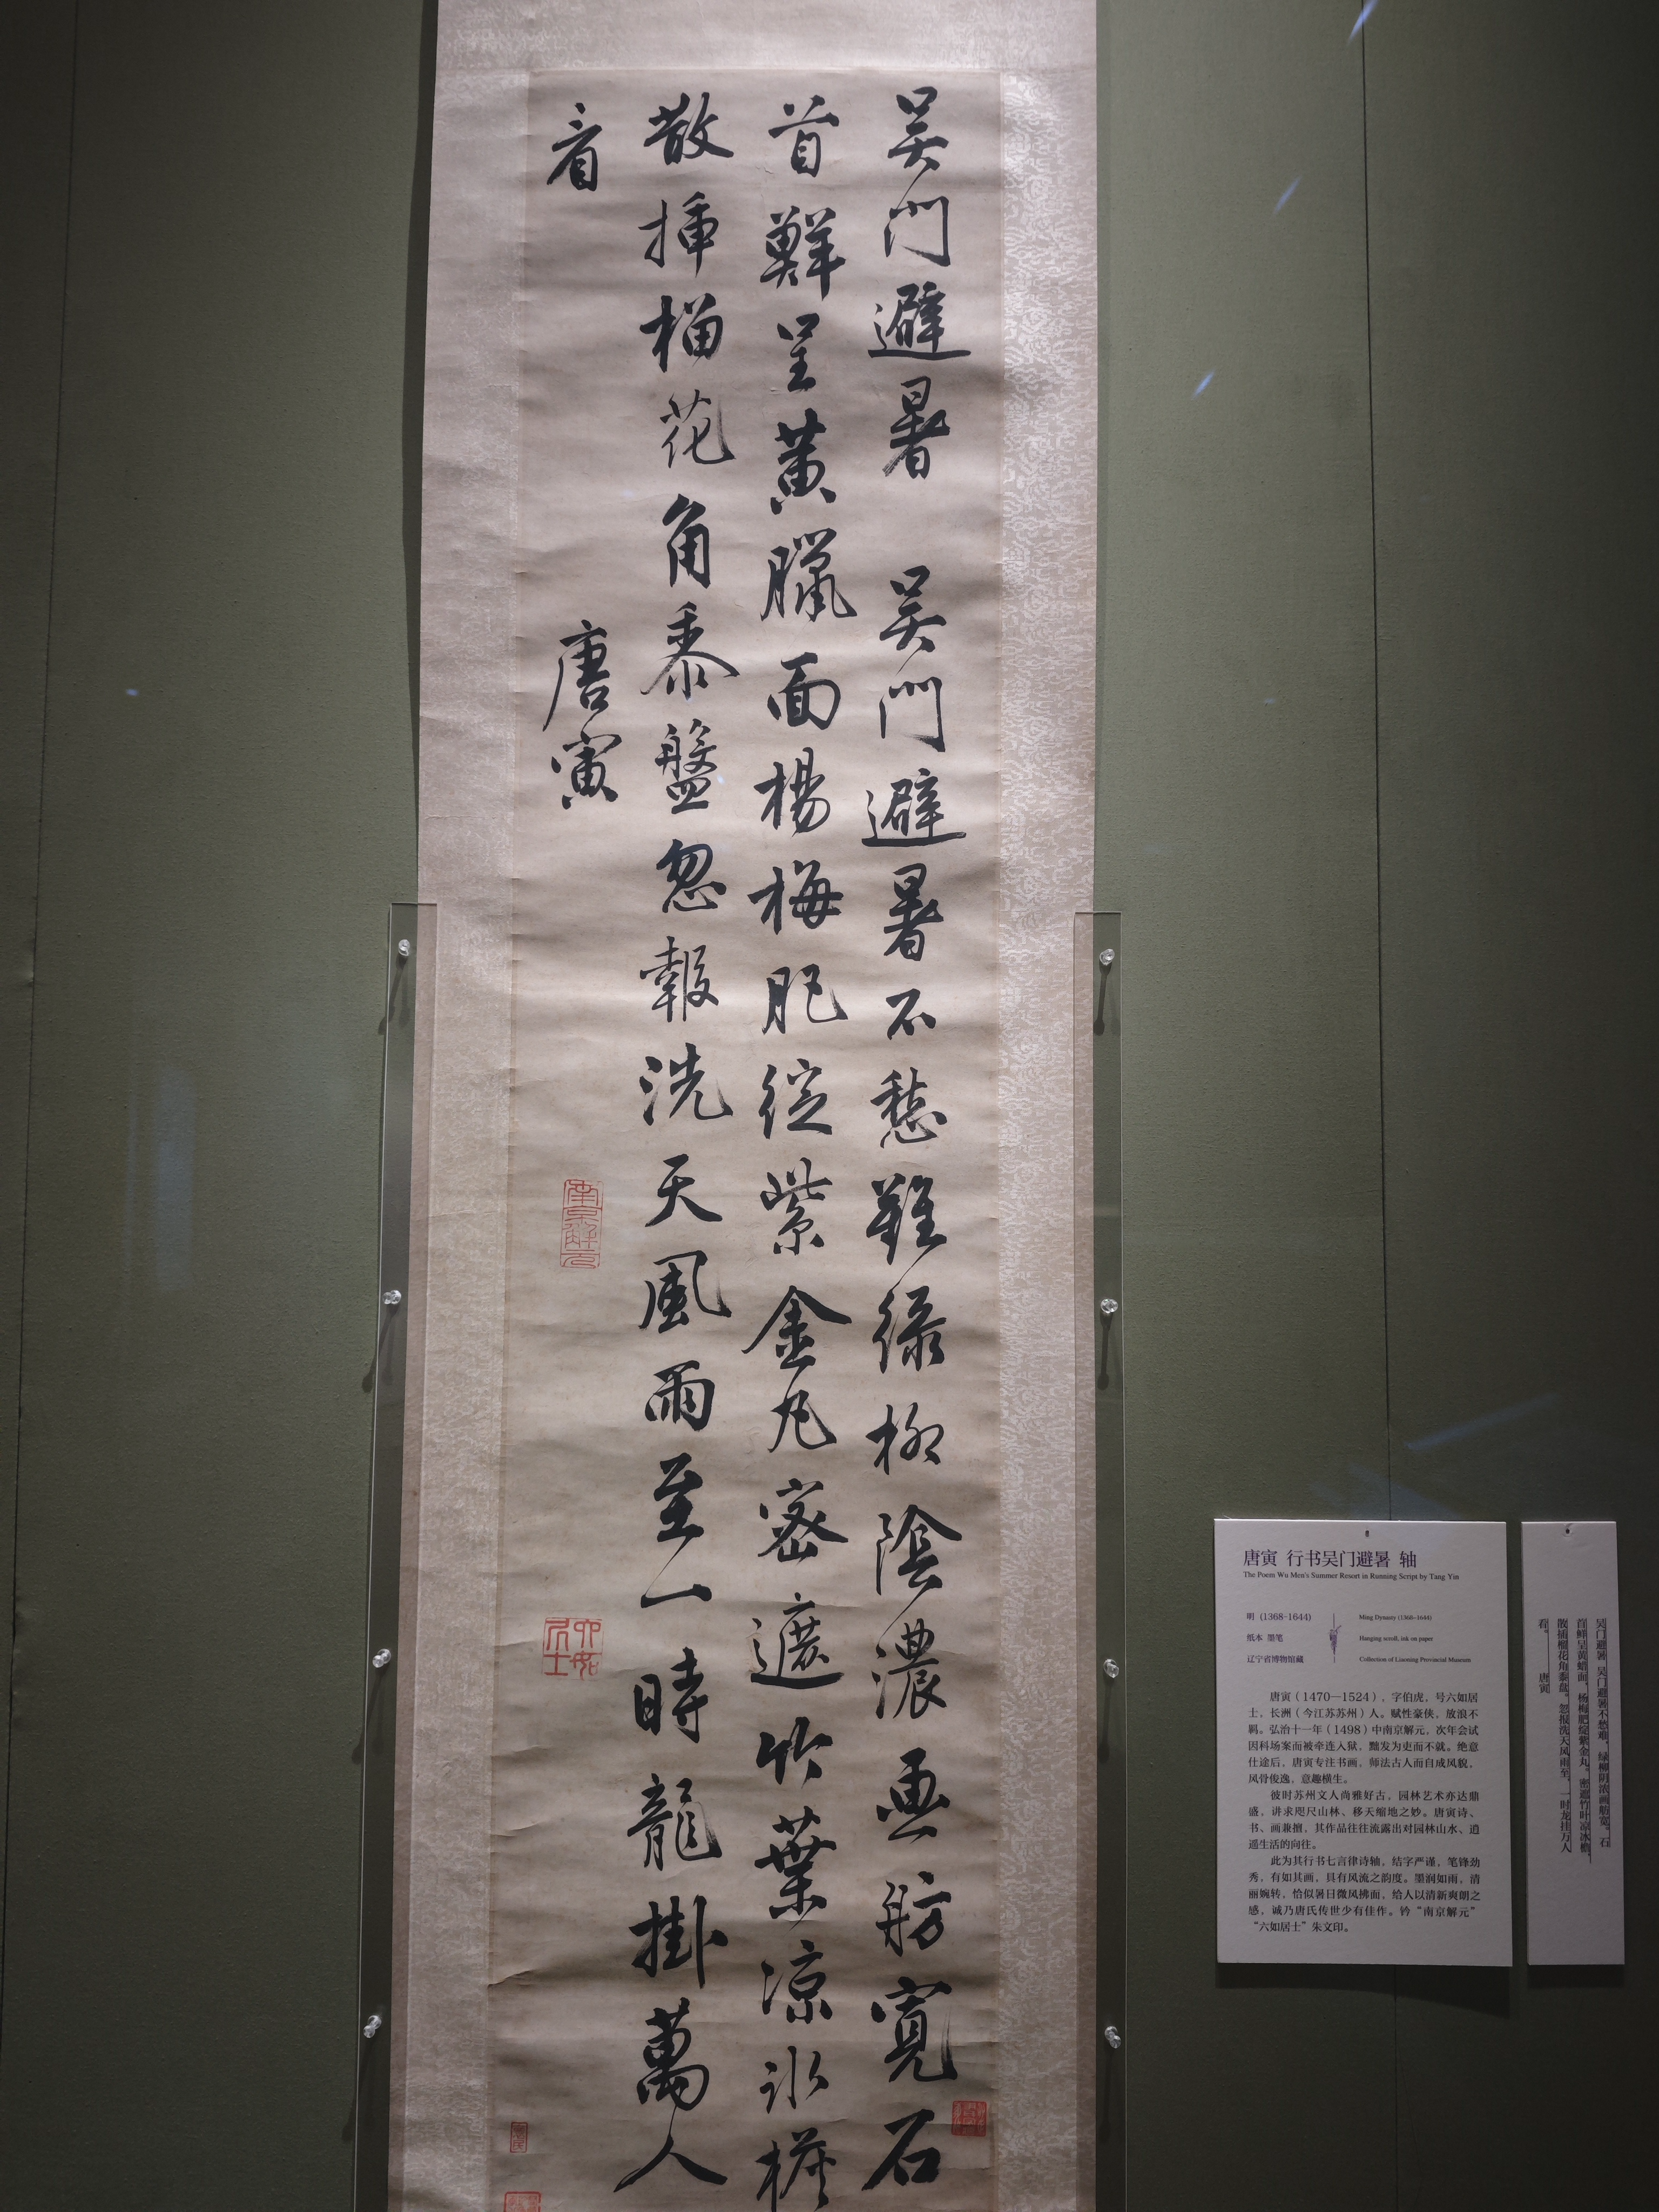 吴門避暑 吴門避暑不愁難綠柳陰濃画舫寬石
首鮮呈黄臘面楊梅肥綻紫金丸密遮竹葉凉冰
散插榴花角黍盤忽報洗天風雨至一時龍掛萬人
看
唐寅
南京解元
六如居士
唐寅 行书吴门避暑 轴
The Poem Wu Men's Summer Resort in Running Script by Tang Yin
明 (1368-1644)
Ming Dynasty (1368-1644)
纸本 墨笔
Hanging scroll, ink on paper
辽宁省博物馆藏
Collection of Liaoning Provincial Museum
唐寅（1470—1524），字伯虎，号六如居
士，长洲（今江苏苏州）人。赋性豪侠，放浪不
羁。弘治十一年（1498）中南京解元，次年会试
因科场案而被牵连入狱，黜发为吏而不就。绝意
仕途后，唐寅专注书画，师法古人而自成风貌，
风骨俊逸，意趣横生。
彼时苏州文人尚雅好古，园林艺术亦达鼎
盛，讲求咫尺山林、移天缩地之妙。唐寅诗、
书、画兼擅，其作品往往流露出对园林山水、逍
遥生活的向往。
此为其行书七言律诗轴，结字严谨，笔锋劲
秀，有如其画，具有风流之韵度。墨润如雨，清
丽婉转，恰似暑日微风拂面，给人以清新爽朗之
感，诚乃唐氏传世少有佳作。钤“南京解元”
“六如居士”朱文印。
吴门避暑 吴门避暑不愁难，绿柳阴浓画舫宽。石
首鲜呈黄蜡面，杨梅肥绽紫金丸。密遮竹叶凉冰
散插榴花角黍盘。忽报洗天风雨至，一时龙挂万人
看。 唐寅